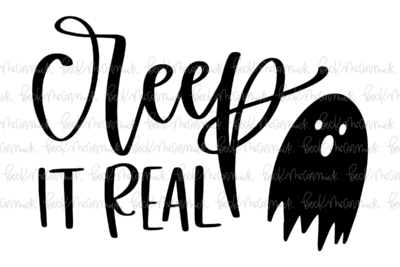 Creep
IT REAL